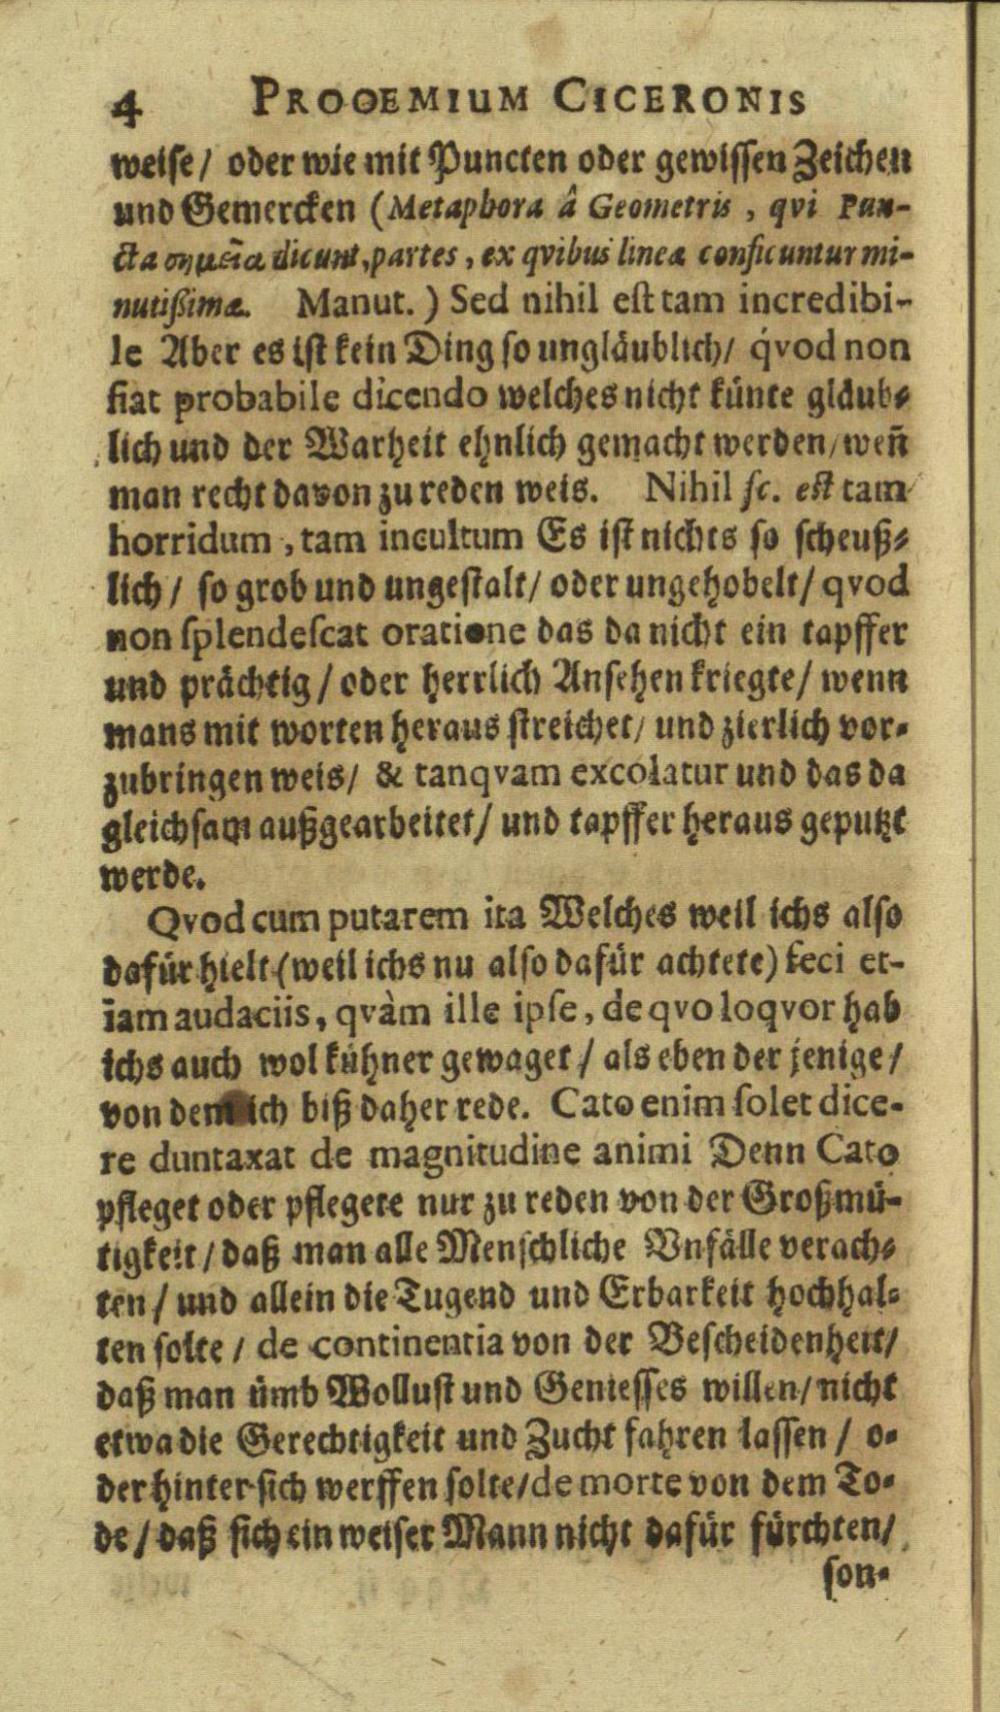 4 PROOEMIUM CICERONIS
weise/ oder wie mit Puncten oder gewissen Zeichen
und Gemercken (Metaphora â Geometris, qvi Pun-
cta σημεῖα dicunt, partes, ex qvibus lineæ conficuntur mi-
nutißimæ. Manut.) Sed nihil est tam incredibi-
le Aber es ist kein Ding so ungläublich/ qvod non
fiat probabile dicendo welches nicht künte gläub-
lich und der Warheit ehnlich gemacht werden/ weñ
man recht davon zu reden weis. Nihil sc. est tam
horridum, tam incultum Es ist nichts so scheuß-
lich/ so grob und ungestalt/ oder ungehobelt/ qvod
non splendescat oratione das da nicht ein tapffer
und prächtig/ oder herrlich Ansehen kriegte/ wenn
mans mit worten heraus streichet/ und zierlich vor-
zubringen weis/ & tanqvam excolatur und das da
gleichsam außgearbeitet/ und tapffer heraus geputzt
werde.
Qvod cum putarem ita Welches weil ichs also
dafür hielt (weil ichs nu also dafür achtete) feci et-
iam audaciis, qvàm ille ipse, de qvo loqvor hab
ichs auch wol kühner gewaget/ als eben der jenige/
von dem ich biß daher rede. Cato enim solet dice-
re duntaxat de magnitudine animi Denn Cato
pfleget oder pflegete nur zu reden von der Großmü-
tigkeit/ daß man alle Menschliche Vnfälle verach-
ten/ und allein die Tugend und Erbarkeit hochhal-
ten solte/ de continentia von der Bescheidenheit/
daß man ümb Wollust und Geniesses willen/ nicht
etwa die Gerechtigkeit und Zucht fahren lassen/ o-
der hinter sich werffen solte/ de morte von dem To-
de/ daß sich ein weiser Mann nicht dafür fürchten/
son-